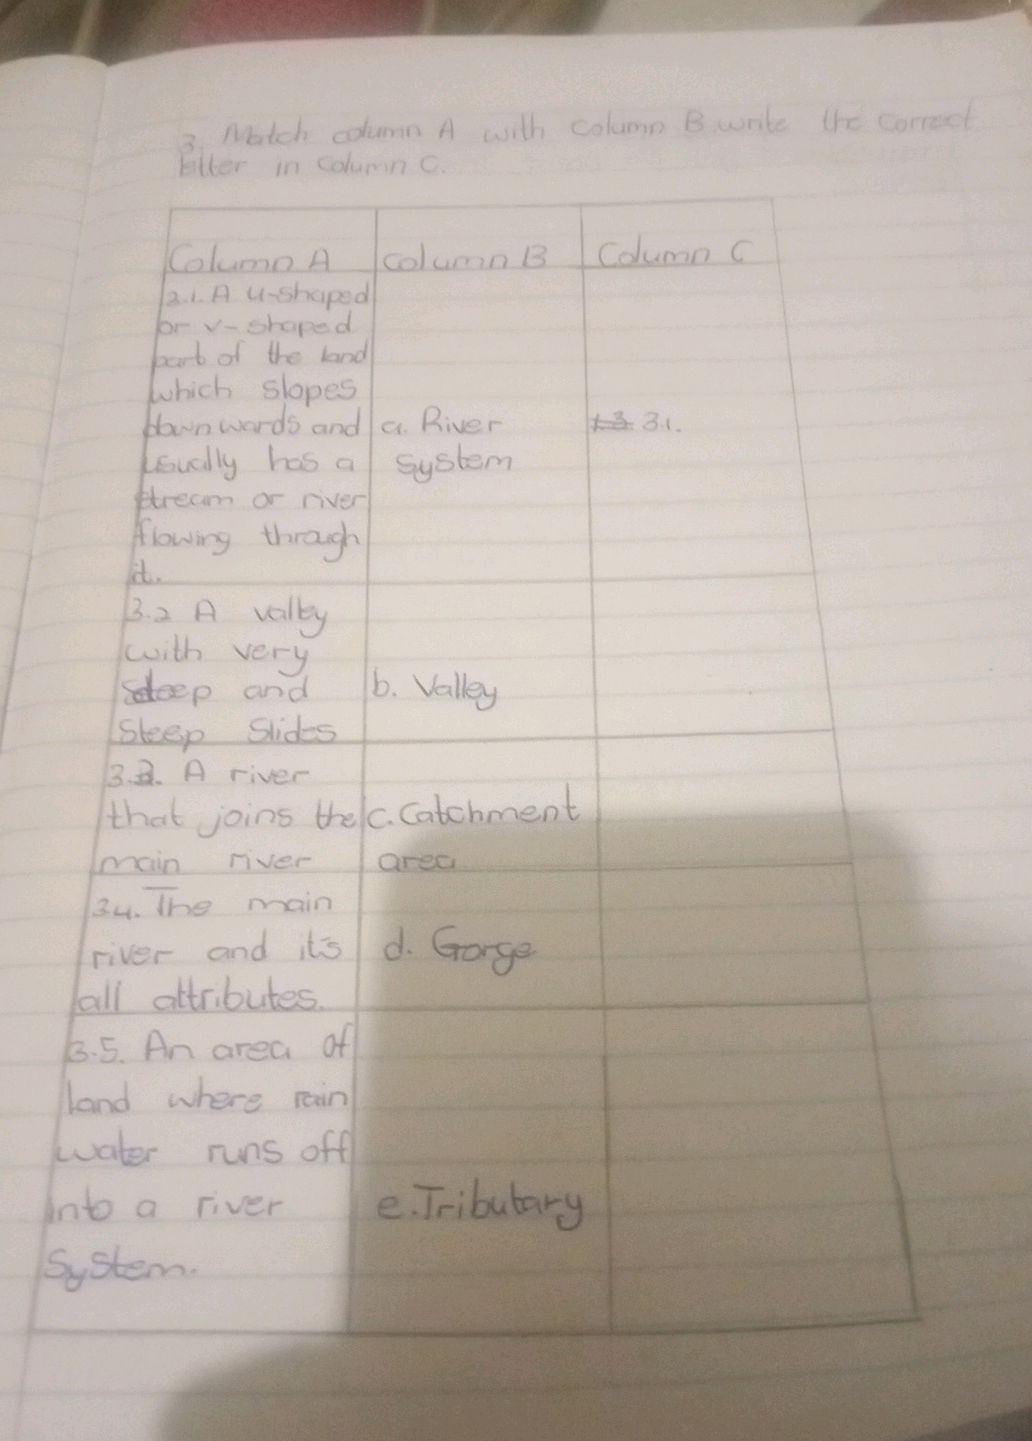 3. Match column A with column B write the correct
letter in Column C.
Column A
3.1. A U-shaped
or v-shaped
part of the land
which slopes
downwards and
usually has a
stream or river
flowing through
it.
Column B
a. River
system
Column C
3.1.
3.2 A valley
with very
steep and
steep Slides
b. Valley
3.3. A river
that joins the
main river
c. Catchment
area
3.4. The main
river and it's
all attributes.
d. Gorge
3.5. An area of
land where rain
water runs off
into a river
System.
e. Tributary